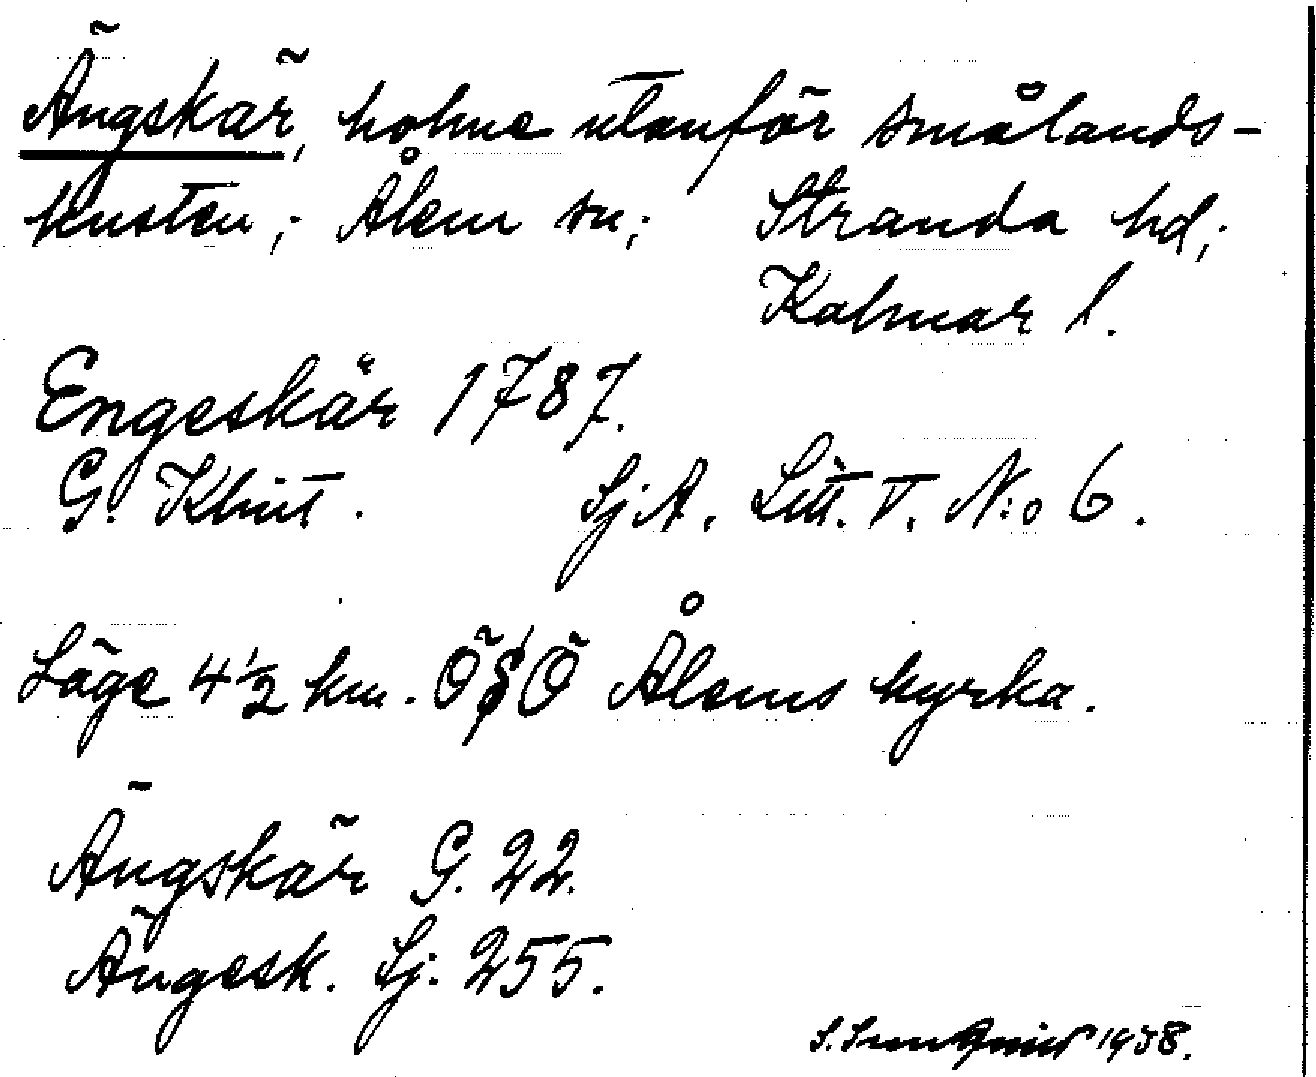 Ängskär, holme utanför smålands-
kusten; Ålem sn; Stranda hd;
Kalmar l.
Engeskär 1787.
G. Klint. Sj.A. Litt. V. N:o 6.
Läge 4 1/2 km. ÖSÖ Ålems kyrka.
Ängskär G. 22.
Ängesk. Sj. 255.
S. 1938.